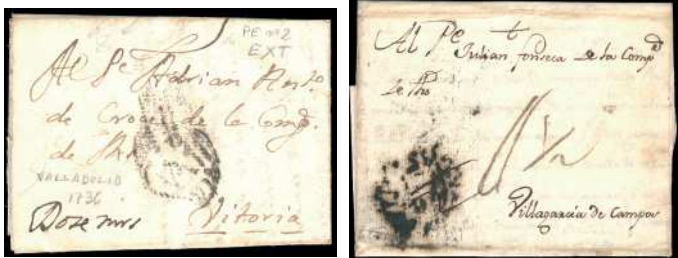 PE nº2
EXT
Al Pe Adrian Anto.
de Croce de la Compª.
de Jhs
VALLADOLID
1736
Dose mrs
Vitoria
Al Pe t
Julian fonseca de la Compª
de Jhs
1/2
Villagarcia de Campos